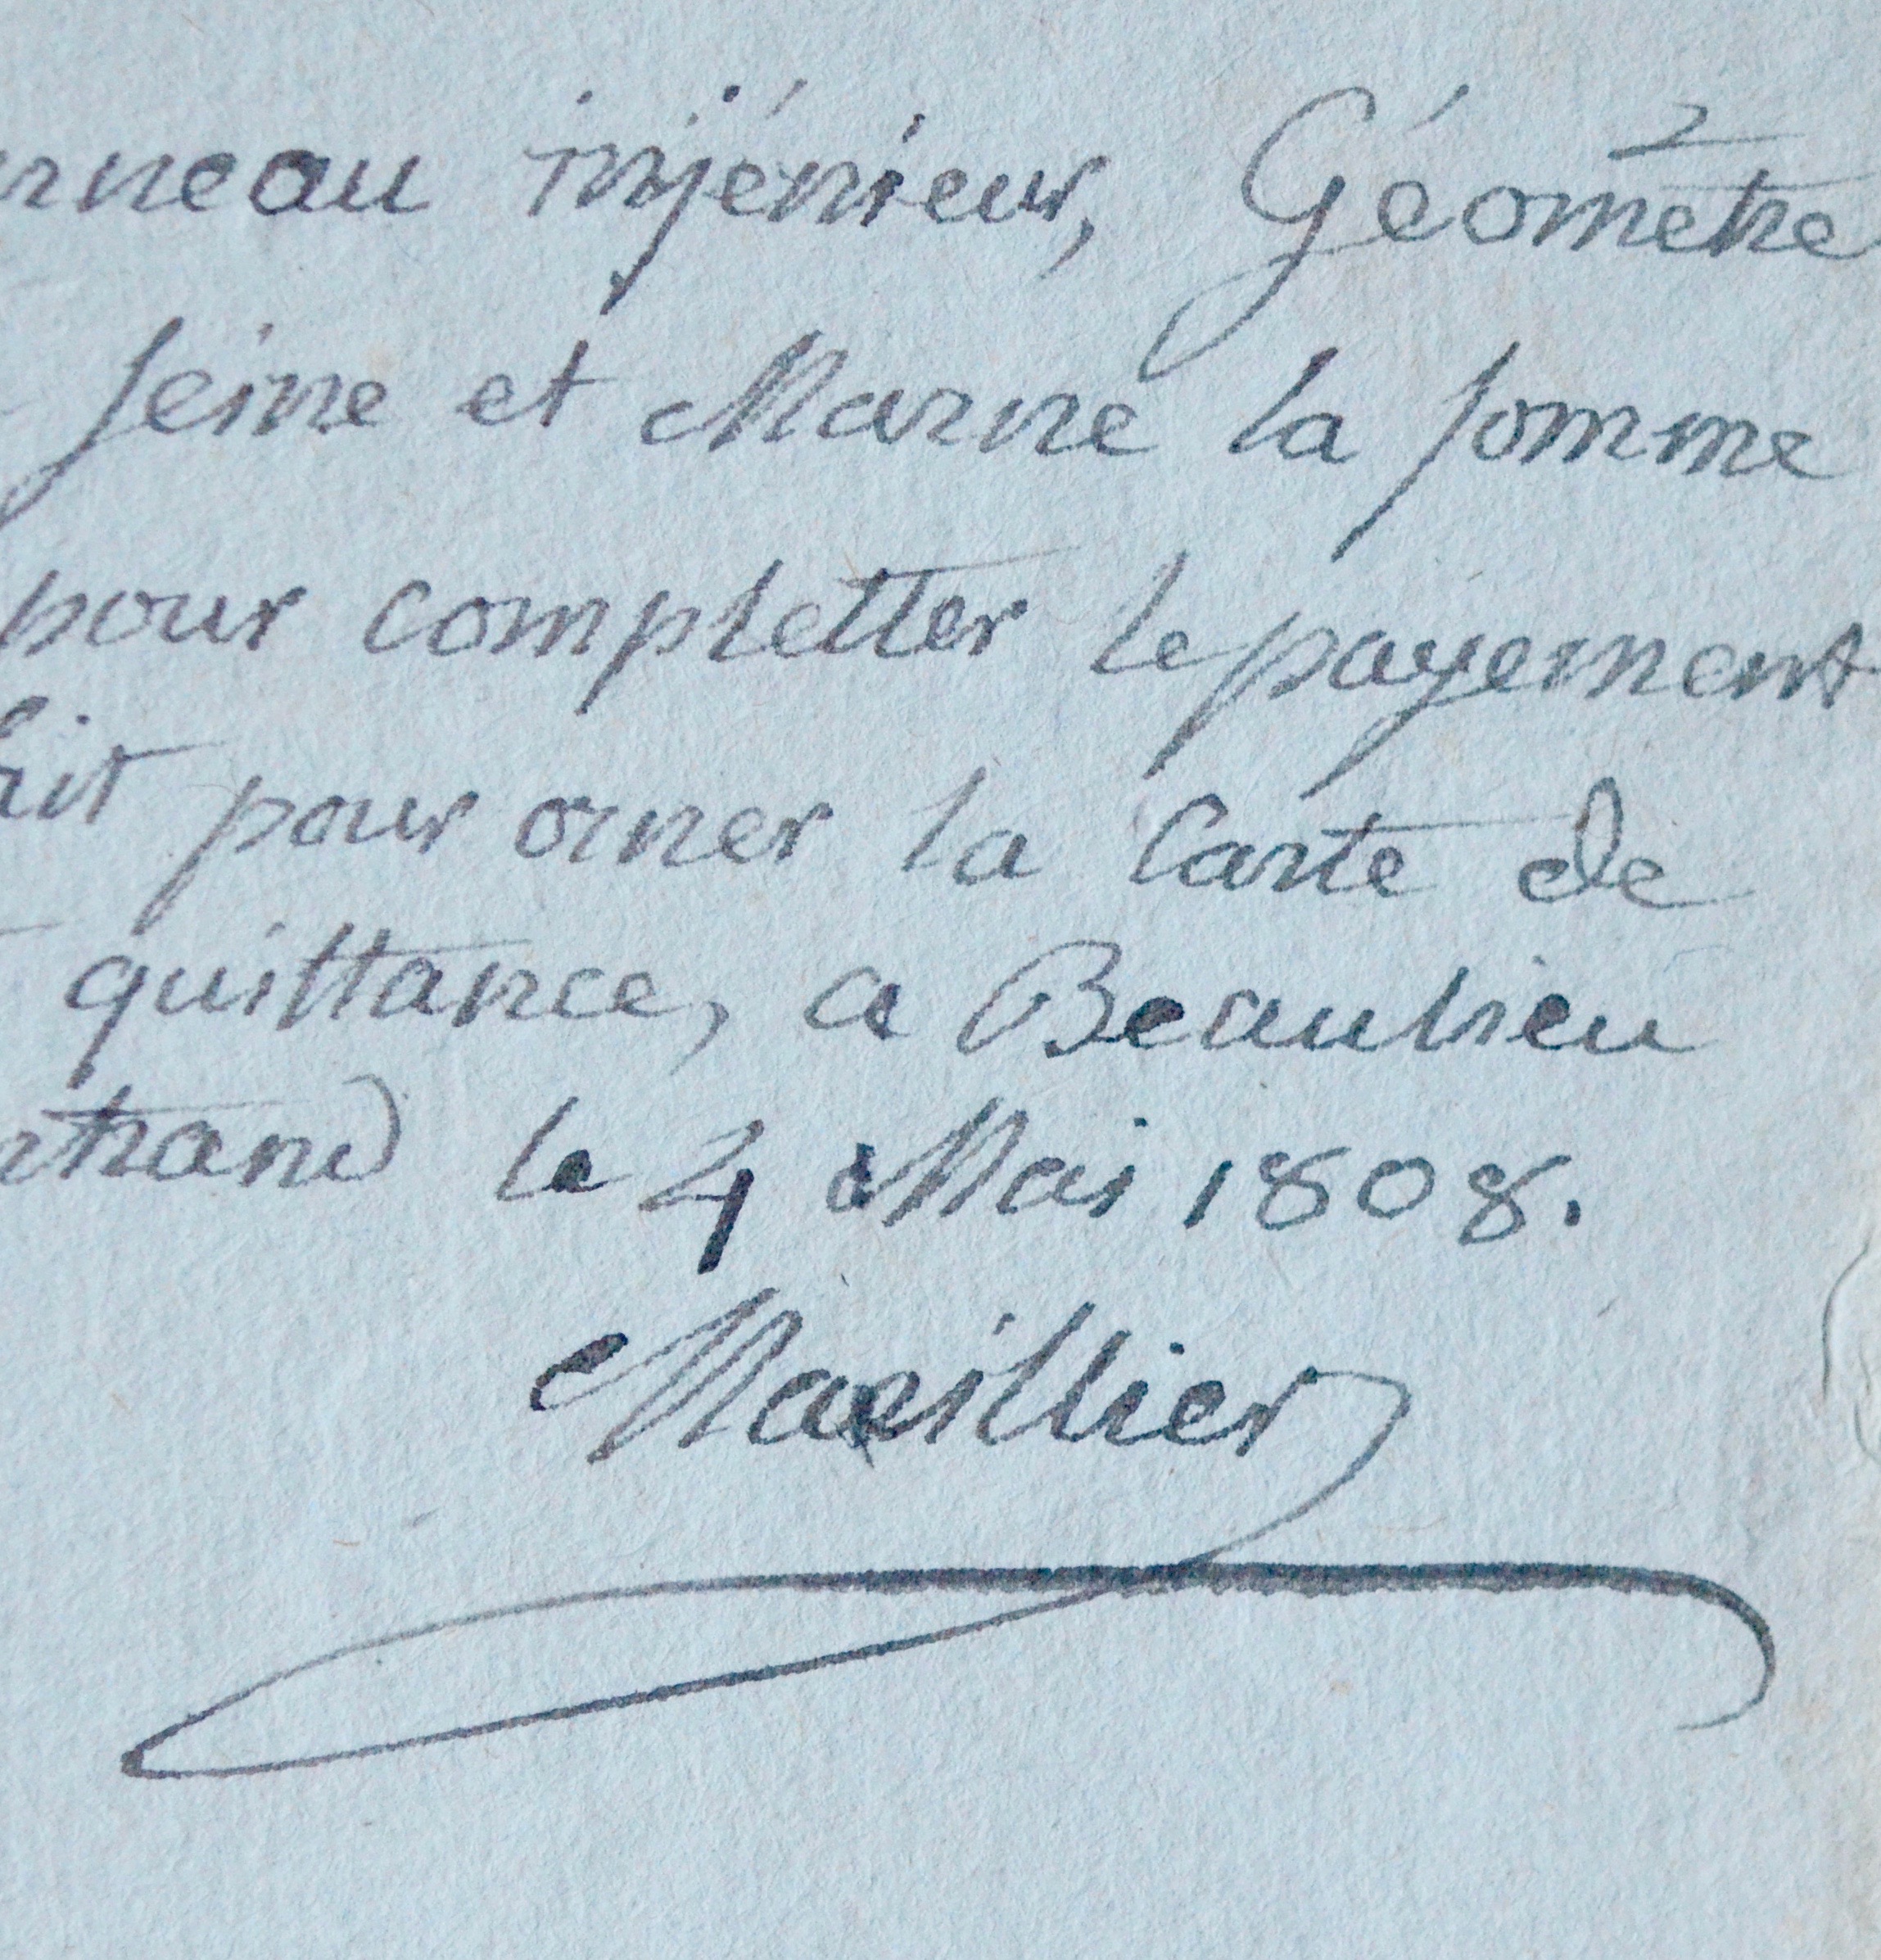 rneau injénieur, Géometre
Seine et Marne la somme
pour completter le payement
ait pour orner la Carte de
quittance, a Beaulieu
rtrand le 4 Mai 1808.
Marillier